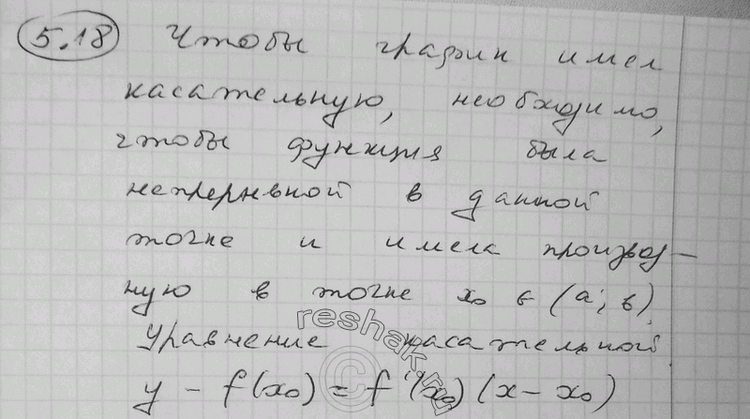 5.18 Чтобы график имел
касательную, необходимо,
чтобы функция была
непрерывной в данной
точке и имела производ-
ную в точке x₀ ∈ (a; b).
Уравнение касательной
y - f(x₀) = f'(x₀)(x - x₀)
reshak.ru